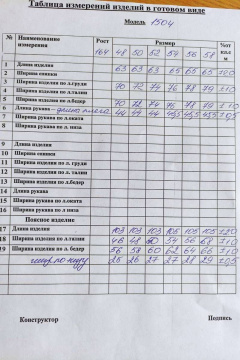 Таблица измерений изделий в готовом виде
Модель 1504
№ Наименование измерения Рост Размер
164 48 50 52 54 56 58
1 Длина изделия 63 63 63 65 65 65 ±2.0
2 Ширина спинки
3 Ширина изделия по л.груди 70 72 74 76 78 ±1.0
4 Ширина изделия по л. талии
5 Ширина изделия по л.бедер 70 72 74 76 78 ±1.0
6 Длина рукава 44 44 44 45,5 45,5 45,5
7 Ширина рукава по л.оката
8 Ширина рукава по л. низа
9 Длина изделия
10 Ширина спинки
11 Ширина изделия по л. груди
12 Ширина изделия по л. талии
13 Ширина изделия по л.бедер
14 Длина рукава
15 Ширина рукава по л.оката
16 Ширина рукава по л. низа
Поясное изделие
17 Длина изделия 103 103 103 105 105 105 ±2.0
18 Ширина изделия по л.талии 46 48 50 54 56 68 ±1.0
19 Ширина изделия по л. бедер 56 58 60 62 64 66 ±1.0
25 26 27 27 28 29 ±0,5
Конструктор Подпись